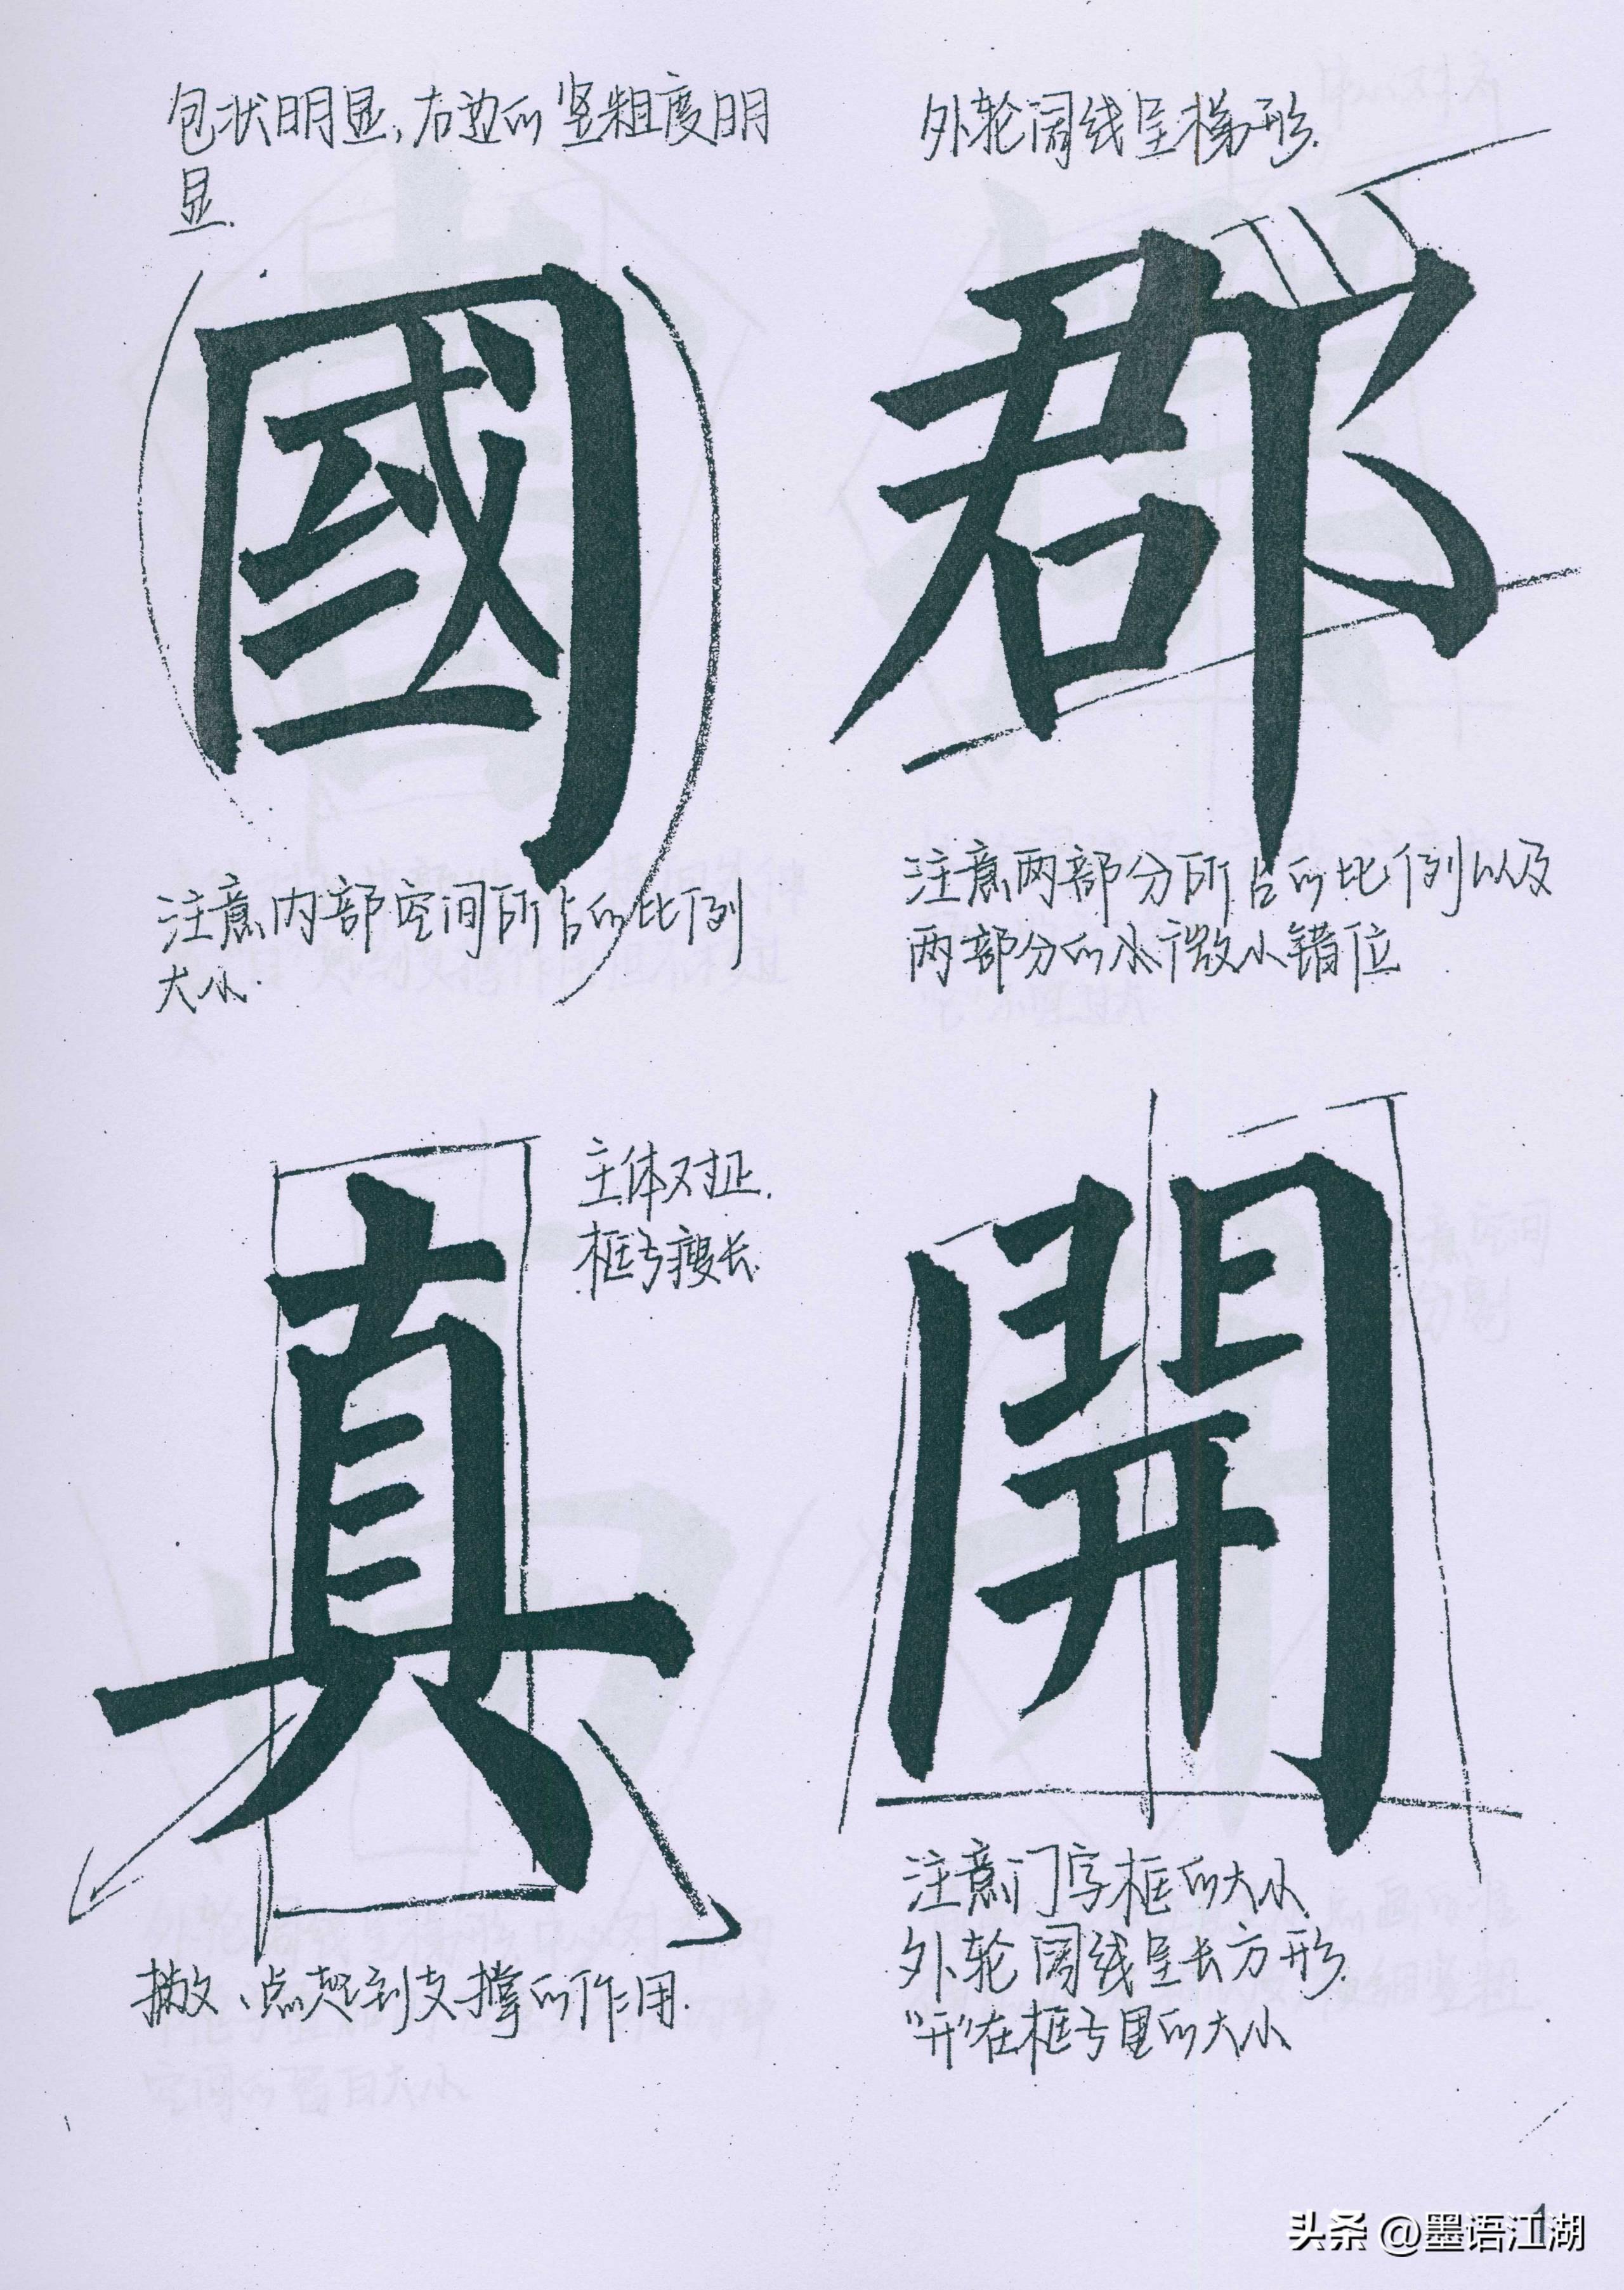 包状明显、右边的竖粗度明
显.
國
注意内部空间所占的比例
大小.
外轮阔线呈梯形.
郡
注意两部分所占的比例以及
两部分的水平微小错位
真
主体对正.
框子瘦长.
撇、点起到支撑的作用.
開
注意门字框的大小
外轮阔线呈长方形.
“开”在框子里的大小
1
头条 @墨语江湖